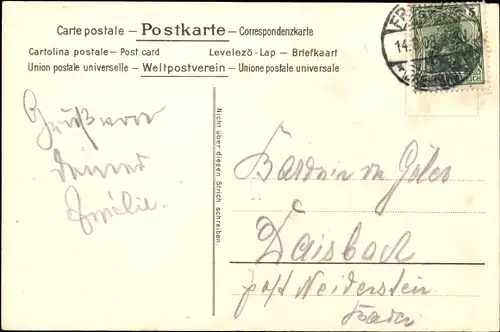 Carte postale – Postkarte – Correspondenzkarte
Cartolina postale – Post card Levelező-Lap – Briefkaart
Union postale universelle – Weltpostverein – Unione postale universale
Nicht über diesen Strich schreiben.
Gruß von
deiner
Amélie.
Daisbach
post Neidenstein
Baden